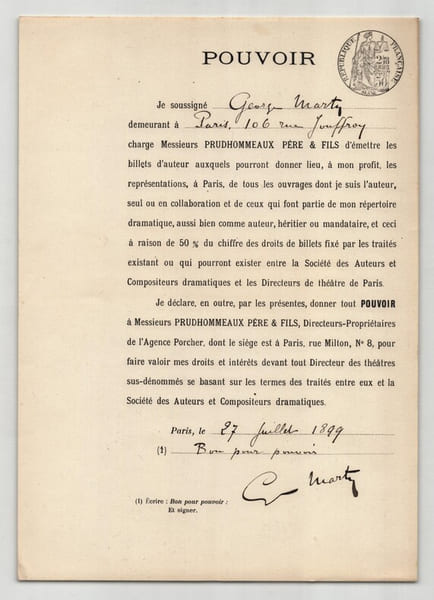 POUVOIR
RÉPUBLIQUE FRANÇAISE
Je soussigné George Marty
demeurant à Paris, 106 rue Jouffroy
charge Messieurs PRUDHOMMEAUX PÈRE & FILS d'émettre les
billets d'auteur auxquels pourront donner lieu, à mon profit, les
représentations, à Paris, de tous les ouvrages dont je suis l'auteur,
seul ou en collaboration et de ceux qui font partie de mon répertoire
dramatique, aussi bien comme auteur, héritier ou mandataire, et ceci
à raison de 50 % du chiffre des droits de billets fixé par les traités
existant ou qui pourront exister entre la Société des Auteurs et
Compositeurs dramatiques et les Directeurs de théâtre de Paris.
Je déclare, en outre, par les présentes, donner tout POUVOIR
à Messieurs PRUDHOMMEAUX PÈRE & FILS, Directeurs-Propriétaires
de l'Agence Porcher, dont le siège est à Paris, rue Milton, N° 8, pour
faire valoir mes droits et intérêts devant tout Directeur des théâtres
sus-dénommés se basant sur les termes des traités entre eux et la
Société des Auteurs et Compositeurs dramatiques.
Paris, le 27 Juillet 1899
(1) Bon pour pouvoir
G Marty
(1) Écrire : Bon pour pouvoir :
Et signer.